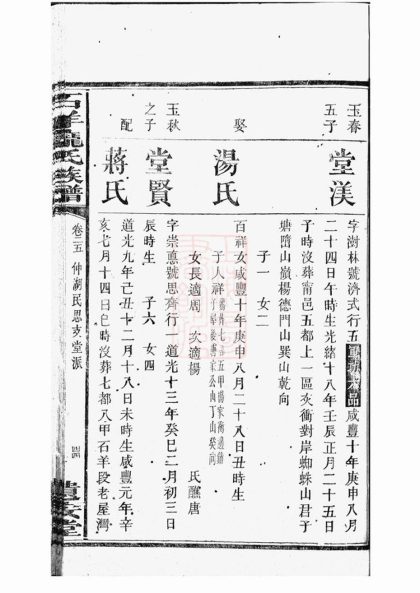 玉春
五子
堂渼
字澍林號濟式行五
咸豐十年庚申八月
二十四日午時生光緒十八年壬辰正月二十五日
子時沒葬甯邑五都上一區炎衝對岸蜘蛛山君子
塘隋山嶺楊德門山巽山乾向
子一 女二
娶
湯氏
百祥女咸豐十年庚申八月二十八日丑時生
子人祥
女長適周 次適楊
氏
唐
玉秋
之子
堂賢
字崇憲號思齊行一道光十三年癸巳二月初三日
辰時生 子六 女四
配
蔣氏
道光九年己丑十二月十八日未時生咸豐元年辛
亥七月十四日巳時沒葬七都八甲石羊段老屋灣
石羊
氏族譜
卷三五 仲湖民思支堂派